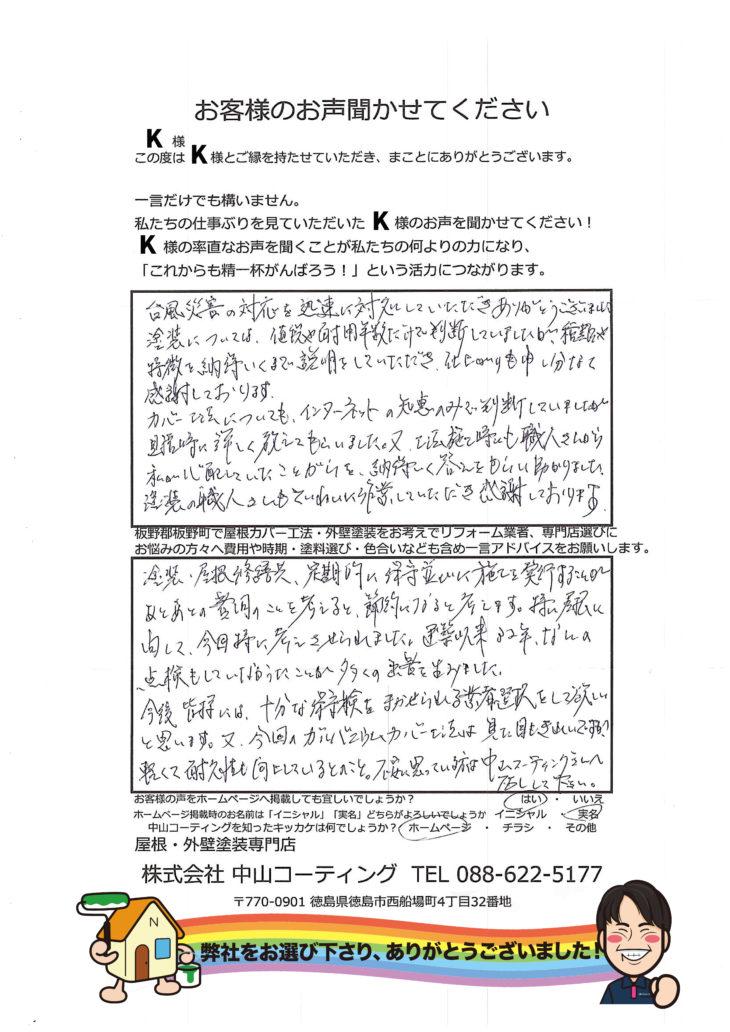 お客様のお声聞かせてください
K 様
この度は K 様とご縁を持たせていただき、まことにありがとうございます。
一言だけでも構いません。
私たちの仕事ぶりを見ていただいた K 様のお声を聞かせてください！
K 様の率直なお声を聞くことが私たちの何よりの力になり、
「これからも精一杯がんばろう！」という活力につながります。
台風災害の対応を迅速に対処していただきありがとうございました
塗装については、値段や耐用年数だけで判断していましたが、種類や
特徴を納得いくまで説明をしていただき、仕上がりも申し分なく
感謝しております。
カバー工法についても、インターネットの知恵のみで判断していましたが
見積時に詳しく教えてもらいました。又、工法施工時にも職人さんから
私が心配していたことがらを、納得いく答えをもらい助かりました。
塗装の職人さんもていねいに作業していただき感謝しております。
板野郡板野町で屋根カバー工法・外壁塗装をお考えでリフォーム業者、専門店選びに
お悩みの方々へ費用や時期・塗料選び・色合いなども含め一言アドバイスをお願いします。
塗装・屋根修繕共、定期的に保守並びに施工を実行することが
あとあとの費用のことを考えると、節約になると考えます。特に屋根に
関して、今回特に考えさせられました。建築以来22年、なんの
点検もしていなかったことが多くの出費を生みました。
今後皆様には、十分な保守点検をまかせられる業者選択をして欲しい
と思います。又、今回のガルバニウムカバー工法は見た目もきれいですが
軽くて耐久性も向上しているとのこと。不安に思っている方は中山コーティングさんへ
して下さい。
お客様の声をホームページへ掲載しても宜しいでしょうか？ はい ・ いいえ
ホームページ掲載時のお名前は「イニシャル」「実名」どちらがよろしいでしょうか イニシャル ・ 実名
中山コーティングを知ったキッカケは何でしょうか？ ホームページ ・ チラシ ・ その他
屋根・外壁塗装専門店
株式会社 中山コーティング TEL 088-622-5177
〒770-0901 徳島県徳島市西船場町4丁目32番地
N
弊社をお選び下さり、ありがとうございました！